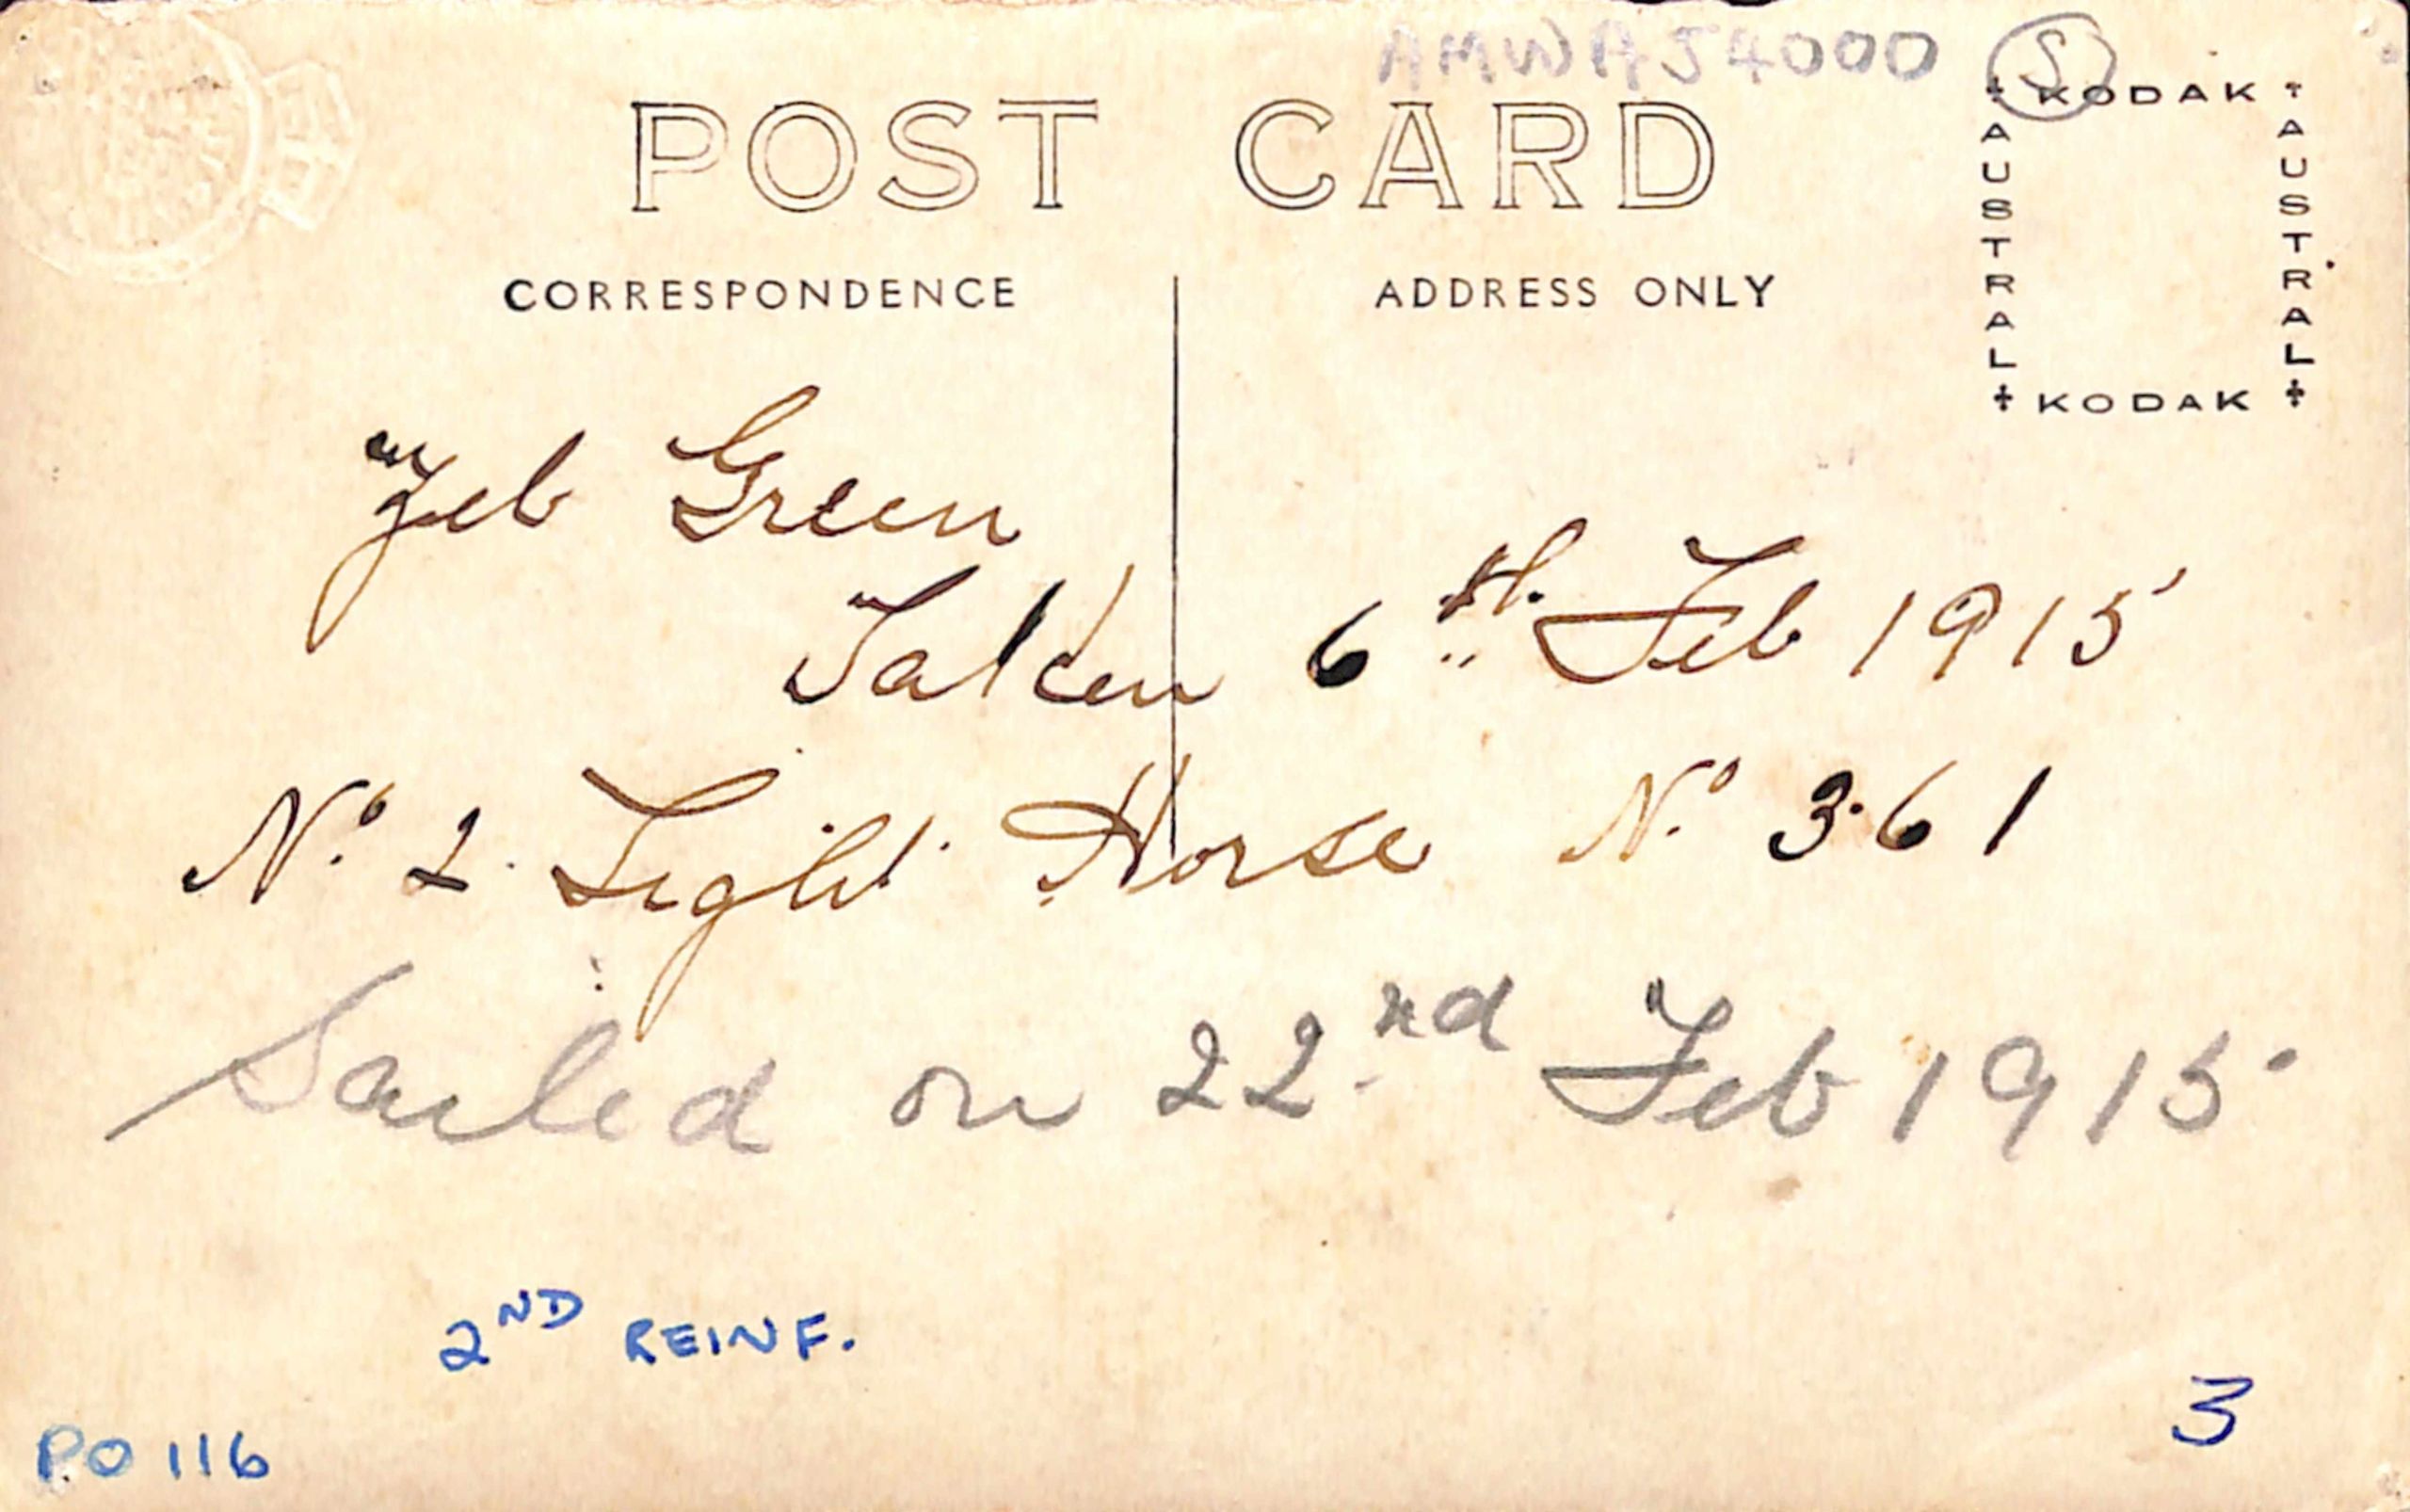 AMWAJ4000 S
POST CARD
KODAK
AUSTRAL
AUSTRAL
KODAK
CORRESPONDENCE
ADDRESS ONLY
Zeb Green
Taken 6th Feb 1915
No. 2. Light Horse No. 361
Sailed on 22nd Feb 1915
2ND REINF.
3
PO 116